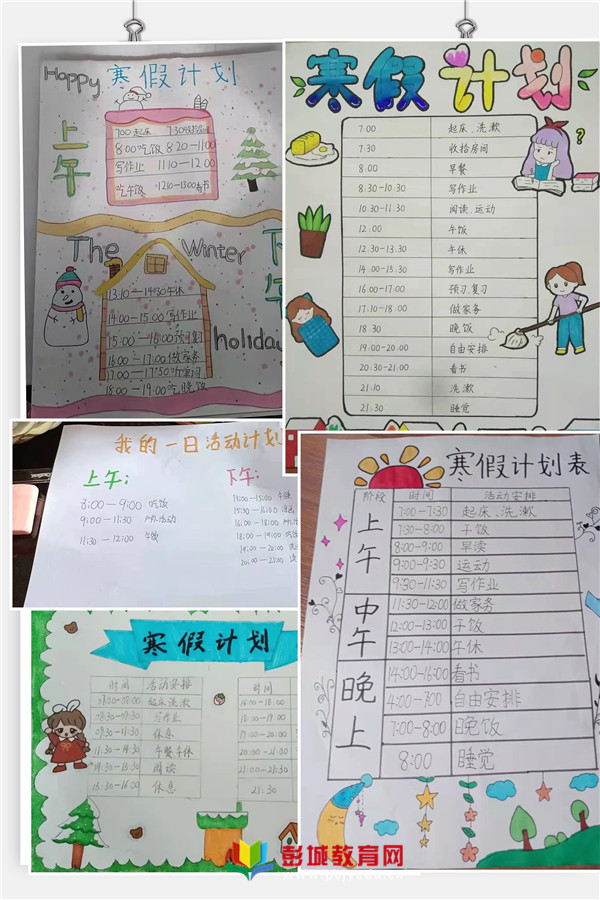 Happy 寒假计划
上午
7:00 起床 7:30收拾房间
8:00吃饭 8:20-11:00
写作业 11:10-12:00
吃午饭 12:10-13:00看书
The Winter
holiday
13:10-14:30午休
14:00-15:00写作业
15:00-16:00预习复习
16:00-17:00做家务
18:00-19:00吃晚饭
寒假计划
7:00 起床、洗漱
7:30 收拾房间
8:00 早餐
8:30-10:30 写作业
10:30-11:30 阅读、运动
12:00 午饭
12:30-13:30 午休
14:00-15:30 写作业
16:00-17:00 预习.复习
17:10-18:00 做家务
18:30 晚饭
19:00-20:00 自由安排
20:30-21:00 看书
21:10 洗漱
21:30 睡觉
我的一日活动计划
上午:
8:00-9:00 吃饭
9:00-11:30 户外活动
11:30-12:00 午饭
下午:
寒假计划表
阶段 时间 活动安排
上午
7:00-7:30 起床、洗漱
7:30-8:00 子饭
8:00-9:00 早读
9:00-9:30 运动
9:30-11:30 写作业
中午
11:30-12:00 做家务
12:00-13:00 子饭
13:00-14:00 午休
晚上
14:00-16:00 看书
4:00-7:00 自由安排
7:00-8:00 晚饭
8:00 睡觉
寒假计划
时间 活动安排
07:00-08:00 起床洗漱
08:30-09:30 写作业
09:30-11:30 休息
11:30-14:30 午餐午休
14:30-15:30 阅读
15:30-16:00 休息
时间
16:00-18:00
18:00-19:00
19:00-20:00
20:00-21:00
21:00-21:30
21:30
彭城教育网